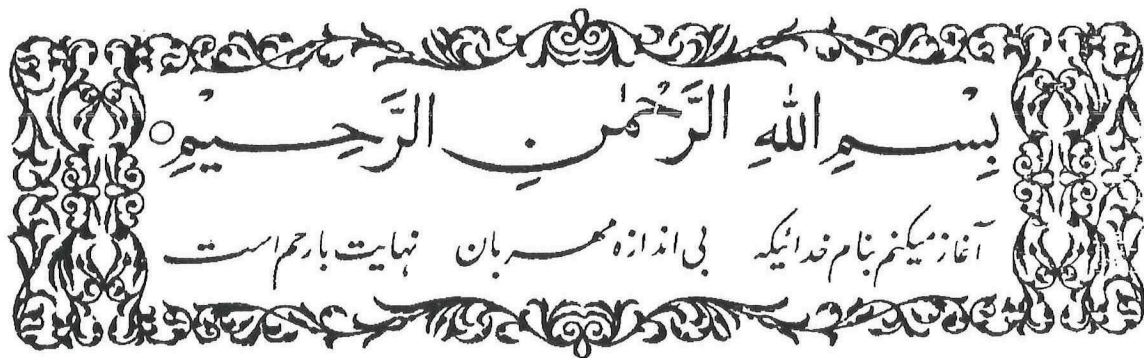 بِسْمِ اللّٰهِ الرَّحْمٰنِ الرَّحِيمِ ○
آغاز میکنم بنام خدائیکه بی اندازه مهربان نهایت بارحم است